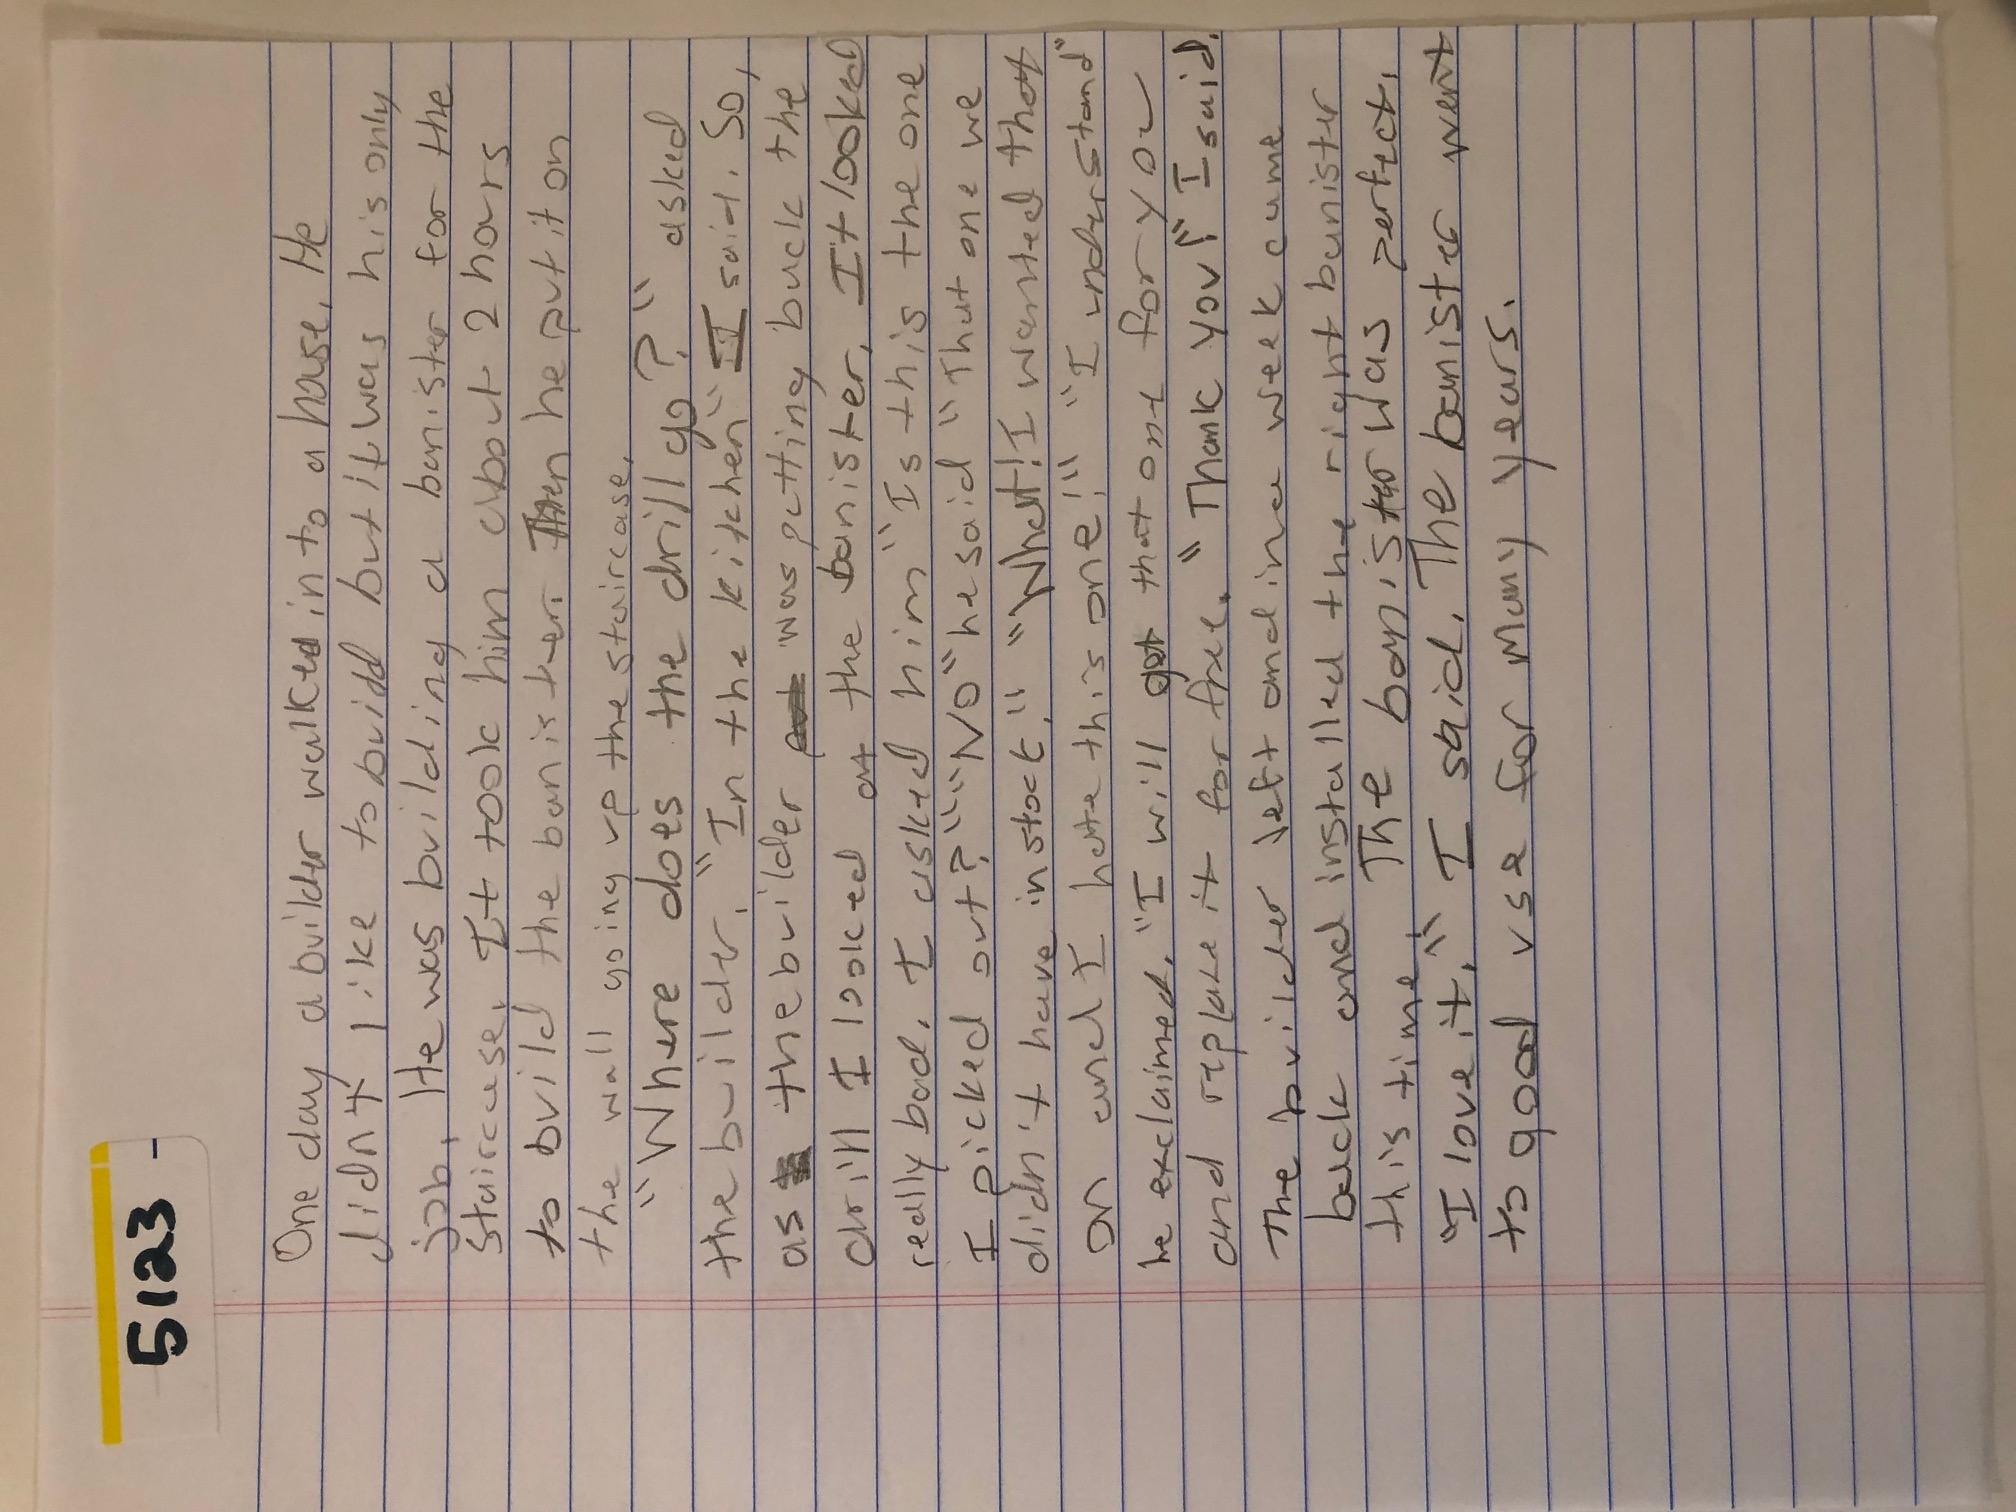 5123 -
One day a builder walked in to a house. He
didn't like to build but it was his only
job. He was building a banister for the
staircase. It took him about 2 hours
to build the banister. Then he put it on
the wall going up the staircase.
"Where does the drill go?" asked
the builder. "In the kitchen" I said. So,
as the builder was putting back the
drill I looked at the banister. It looked
really bad. I asked him "Is this the one
I picked out?" "No" he said "That one we
didn't have in stock." "What! I wanted that
on and I hate this one!" "I understand"
he exclaimed. "I will get that one for you
and replace it for free. "Thank you!" I said.
The builder left and in a week came
back and installed the right banister
this time. The banister was perfect.
"I love it." I said. The banister went
to good use for many years.